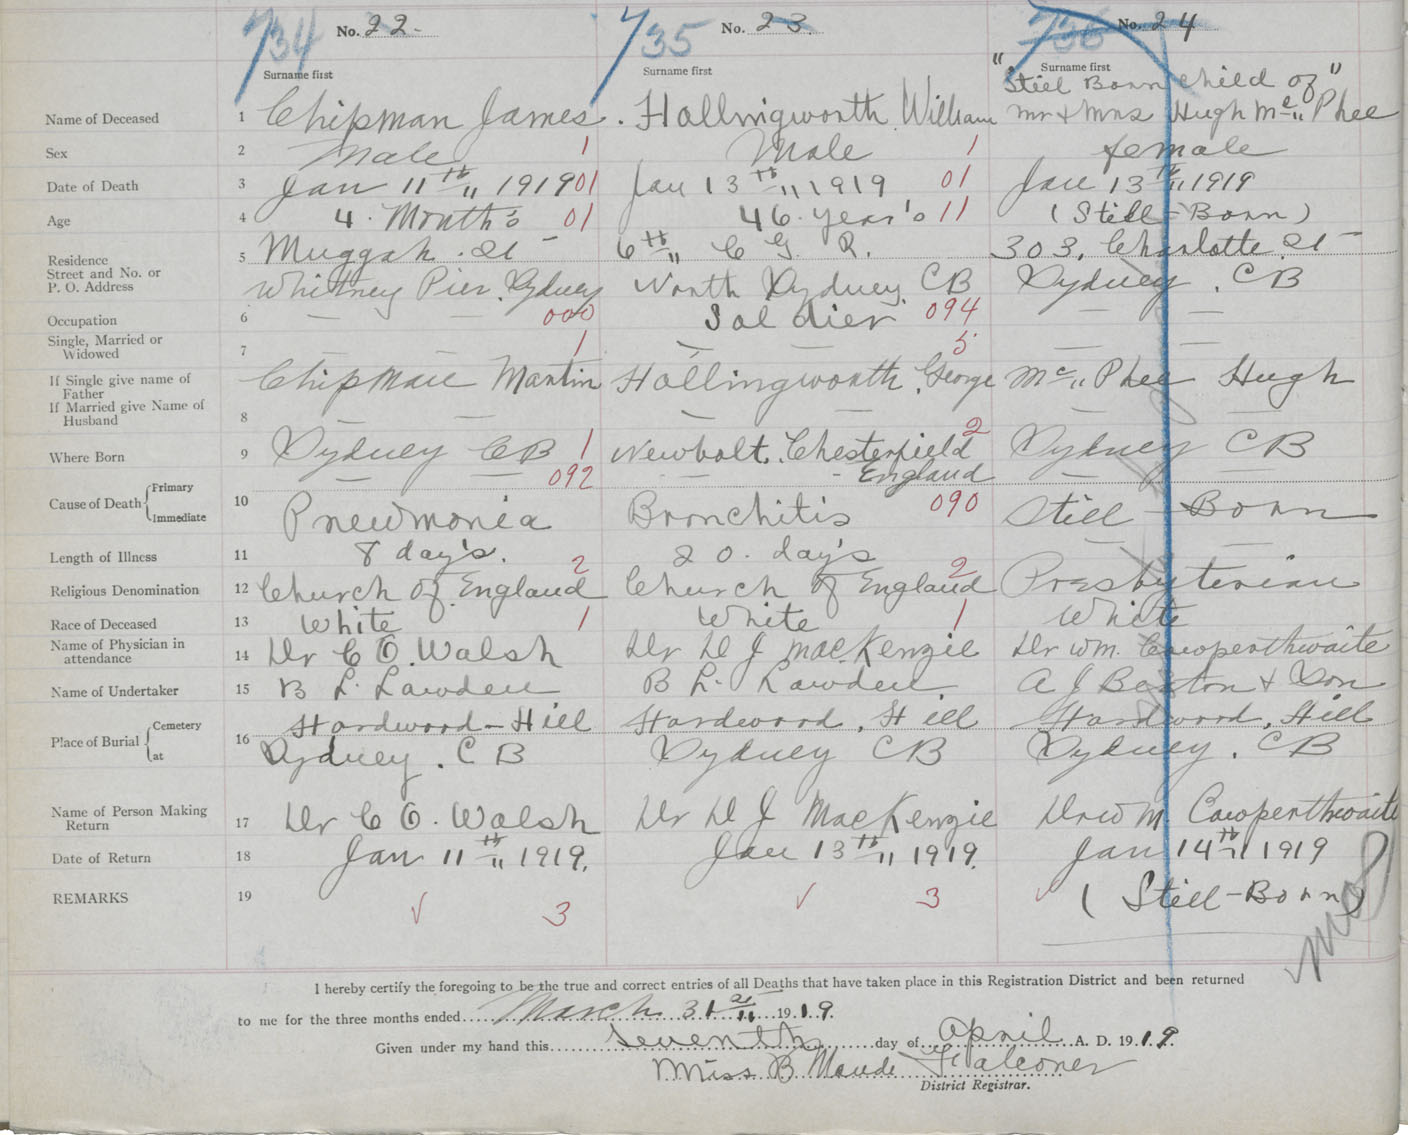 734 No. 22. 735 No. 23. 736 No. 24
Surname first Surname first Surname first
"Still Born child of"
Name of Deceased 1 Chipman James. Hollingworth William Mr & Mrs Hugh Mc" Phee
Sex 2 Male 1 Male 1 female
Date of Death 3 Jan 11th" 1919 01 Jan 13th" 1919 01 Jan 13th" 1919
Age 4 4. Month's 01 46. year's 11 (Still-Born)
Residence 5 Muggah. St 6th" C G. R. 303, Charlotte St
Street and No. or
P. O. Address Whitney Pier, Sydney North Sydney, CB Sydney. CB
Occupation 6 — — 000 Soldier 094 — —
Single, Married or
Widowed 7 — — 1 — — 5 — —
If Single give name of
Father Chipman Martin Hollingworth, George Mc" Phee Hugh
If Married give Name of
Husband 8 — — — — — —
Where Born 9 Sydney CB 1 Newbolt, Chesterfield 2 Sydney CB
England
Cause of Death Primary — — 092 — — — —
Immediate 10 Pneumonia Bronchitis 090 Still-Born
Length of Illness 11 8 day's. 20. day's — —
Religious Denomination 12 Church of England 2 Church of England 2 Presbyterian
Race of Deceased 13 White 1 White 1 White
Name of Physician in
attendance 14 Dr C O. Walsh Dr D J MacKenzie Dr Wm. Cowperthwaite
Name of Undertaker 15 B L. Lawden B L. Lawden A J Beaton & Son
Place of Burial Cemetery 16 Hardwood-Hill Hardwood, Hill Hardwood, Hill
at Sydney. C B Sydney CB Sydney. CB
Name of Person Making
Return 17 Dr C O. Walsh Dr D J MacKenzie Dr W M. Cowperthwaite
Date of Return 18 Jan 11th" 1919. Jan 13th" 1919. Jan 14th" 1919
REMARKS 19 √ 3 √ 3 √ (Still-Born)
I hereby certify the foregoing to be the true and correct entries of all Deaths that have taken place in this Registration District and been returned
to me for the three months ended March 31st" 1919.
Given under my hand this seventh day of April A. D. 1919.
Miss B Maude Falconer
District Registrar.